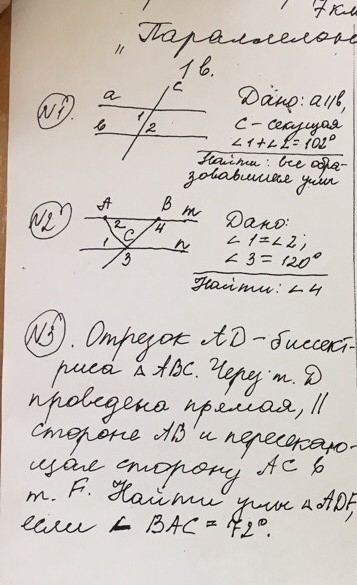 7 км
„ Параллельн
1 в.
№1.
Дано: a∥b,
c - секущая
∠1+∠2=102°
Найти: все обра-
зовавшиеся углы
a
b
c
1
2
№2
Дано:
∠1=∠2;
∠3=120°
Найти: ∠4
A
B
m
2
4
1
C
n
3
№3. Отрезок AD - биссект-
риса △ ABC. Через т. D
проведена прямая, ||
стороне AB и пересекаю-
щая сторону AC в
т. F. Найти углы △ ADF,
если ∠ BAC = 72°.